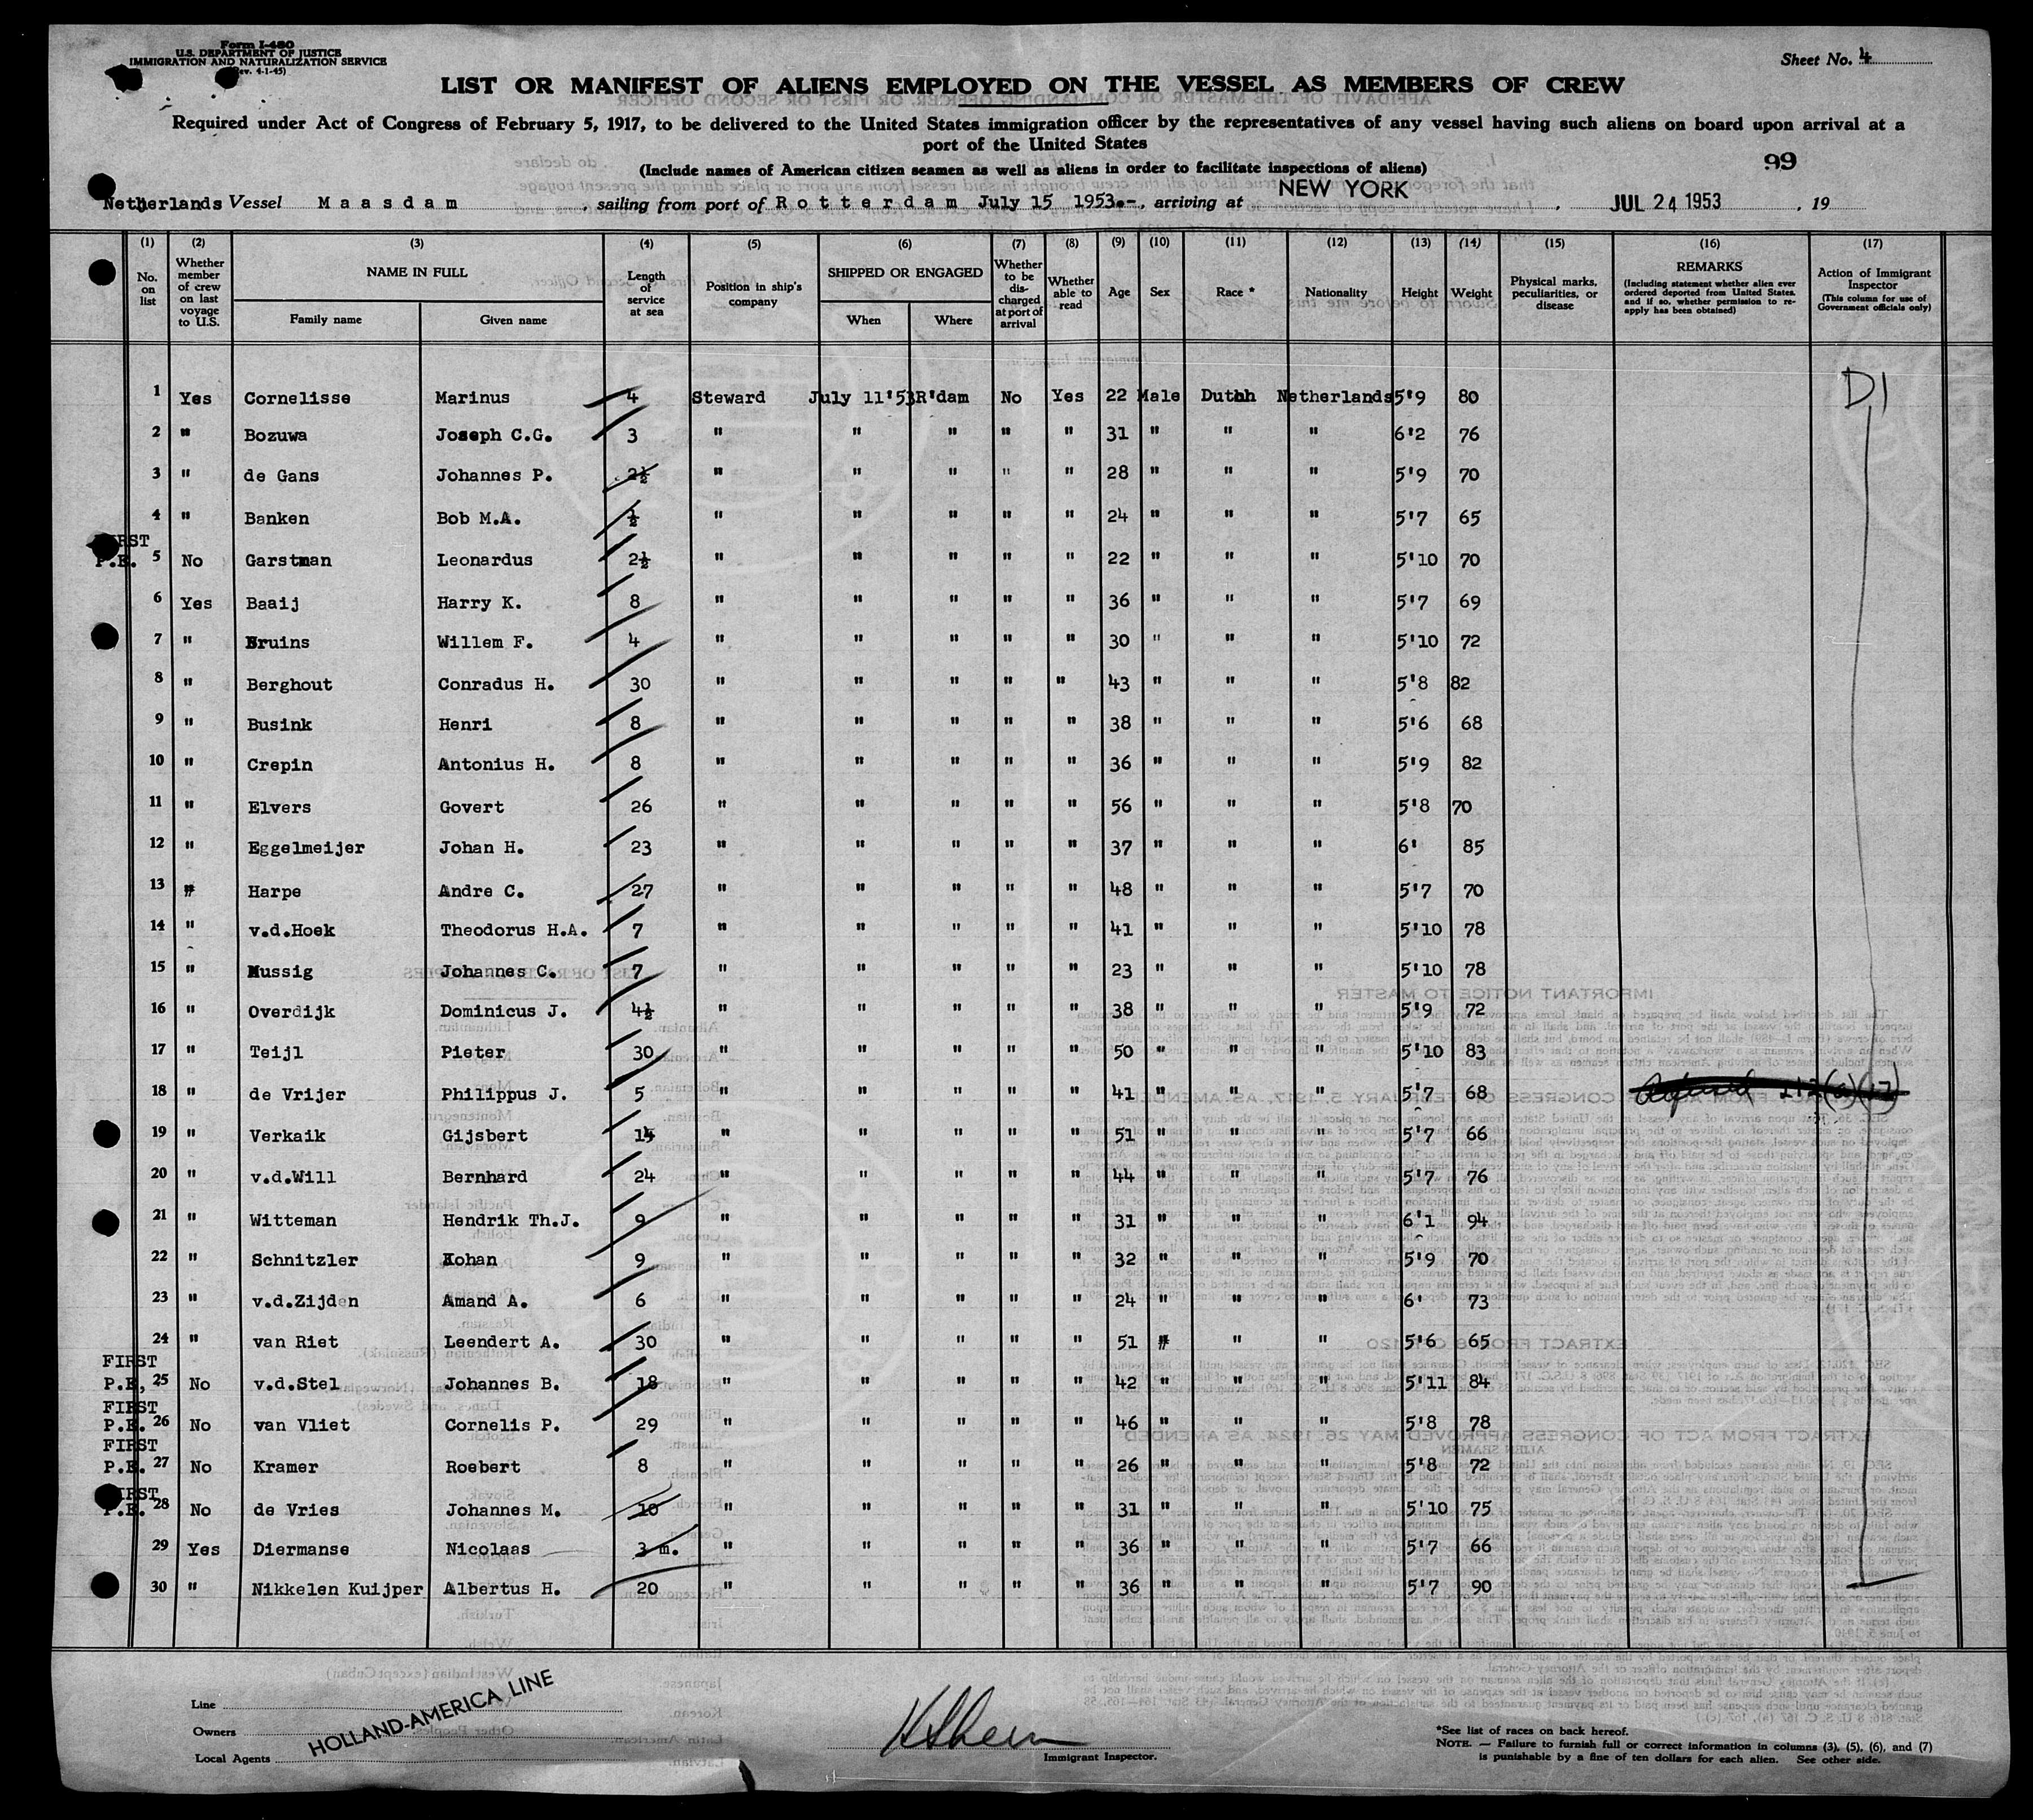 Form I-480
U.S. DEPARTMENT OF JUSTICE
IMMIGRATION AND NATURALIZATION SERVICE
(Rev. 4-1-45)
Sheet No. 4
LIST OR MANIFEST OF ALIENS EMPLOYED ON THE VESSEL AS MEMBERS OF CREW
Required under Act of Congress of February 5, 1917, to be delivered to the United States immigration officer by the representatives of any vessel having such aliens on board upon arrival at a
port of the United States
(Include names of American citizen seamen as well as aliens in order to facilitate inspections of aliens)
99
Netherlands Vessel Maasdam, sailing from port of Rotterdam July 15 1953.-, arriving at NEW YORK, JUL 24 1953, 19
(1) (2) (3) (4) (5) (6) (7) (8) (9) (10) (11) (12) (13) (14) (15) (16) (17)
No. on list
Whether member of crew on last voyage to U.S.
NAME IN FULL
Family name
Given name
Length of service at sea
Position in ship's company
SHIPPED OR ENGAGED
When
Where
Whether to be discharged at port of arrival
Whether able to read
Age
Sex
Race *
Nationality
Height
Weight
Physical marks, peculiarities, or disease
REMARKS
(Including statement whether alien ever ordered deported from United States, and if so, whether permission to reapply has been obtained)
Action of Immigrant Inspector
(This column for use of Government officials only)
1 Yes Cornelisse Marinus 4 Steward July 11'53 R'dam No Yes 22 Male Dutch Netherlands 5'9 80 D1
2 " Bozuwa Joseph C.G. 3 " " " " " 31 " " " 6'2 76
3 " de Gans Johannes P. 2½ " " " " " 28 " " " 5'9 70
4 " Banken Bob M.A. ½ " " " " " 24 " " " 5'7 65
FIRST
P.E. 5 No Garstman Leonardus 2½ " " " " " 22 " " " 5'10 70
6 Yes Baaij Harry K. 8 " " " " " 36 " " " 5'7 69
7 " Bruins Willem F. 4 " " " " " 30 " " " 5'10 72
8 " Berghout Conradus H. 30 " " " " " 43 " " " 5'8 82
9 " Busink Henri 8 " " " " " 38 " " " 5'6 68
10 " Crepin Antonius H. 8 " " " " " 36 " " " 5'9 82
11 " Elvers Govert 26 " " " " " 56 " " " 5'8 70
12 " Eggelmeijer Johan H. 23 " " " " " 37 " " " 6' 85
13 " Harpe Andre C. 27 " " " " " 48 " " " 5'7 70
14 " v.d.Hoek Theodorus H.A. 7 " " " " " 41 " " " 5'10 78
15 " Mussig Johannes C. 7 " " " " " 23 " " " 5'10 78
16 " Overdijk Dominicus J. 4½ " " " " " 38 " " " 5'9 72
17 " Teijl Pieter 30 " " " " " 50 " " " 5'10 83
18 " de Vrijer Philippus J. 5 " " " " " 41 " " " 5'7 68
19 " Verkaik Gijsbert 14 " " " " " 51 " " " 5'7 66
20 " v.d.Will Bernhard 24 " " " " " 44 " " " 5'7 76
21 " Witteman Hendrik Th.J. 9 " " " " " 31 " " " 6'1 94
22 " Schnitzler Kohan 9 " " " " " 32 " " " 5'9 70
23 " v.d.Zijden Amand A. 6 " " " " " 24 " " " 6' 73
24 " van Riet Leendert A. 30 " " " " " 51 " " " 5'6 65
FIRST
P.E, 25 No v.d.Stel Johannes B. 18 " " " " " 42 " " " 5'11 84
FIRST
P.E. 26 No van Vliet Cornelis P. 29 " " " " " 46 " " " 5'8 78
FIRST
P.E. 27 No Kramer Roebert 8 " " " " " 26 " " " 5'8 72
FIRST
P.E. 28 No de Vries Johannes M. 10 " " " " " 31 " " " 5'10 75
29 Yes Diermanse Nicolaas 3 m. " " " " " 36 " " " 5'7 66
30 " Nikkelen Kuijper Albertus H. 20 " " " " " 36 " " " 5'7 90
Line
Owners
Local Agents
HOLLAND-AMERICA LINE
Immigrant Inspector.
*See list of races on back hereof.
NOTE. — Failure to furnish full or correct information in columns (3), (5), (6), and (7)
is punishable by a fine of ten dollars for each alien. See other side.